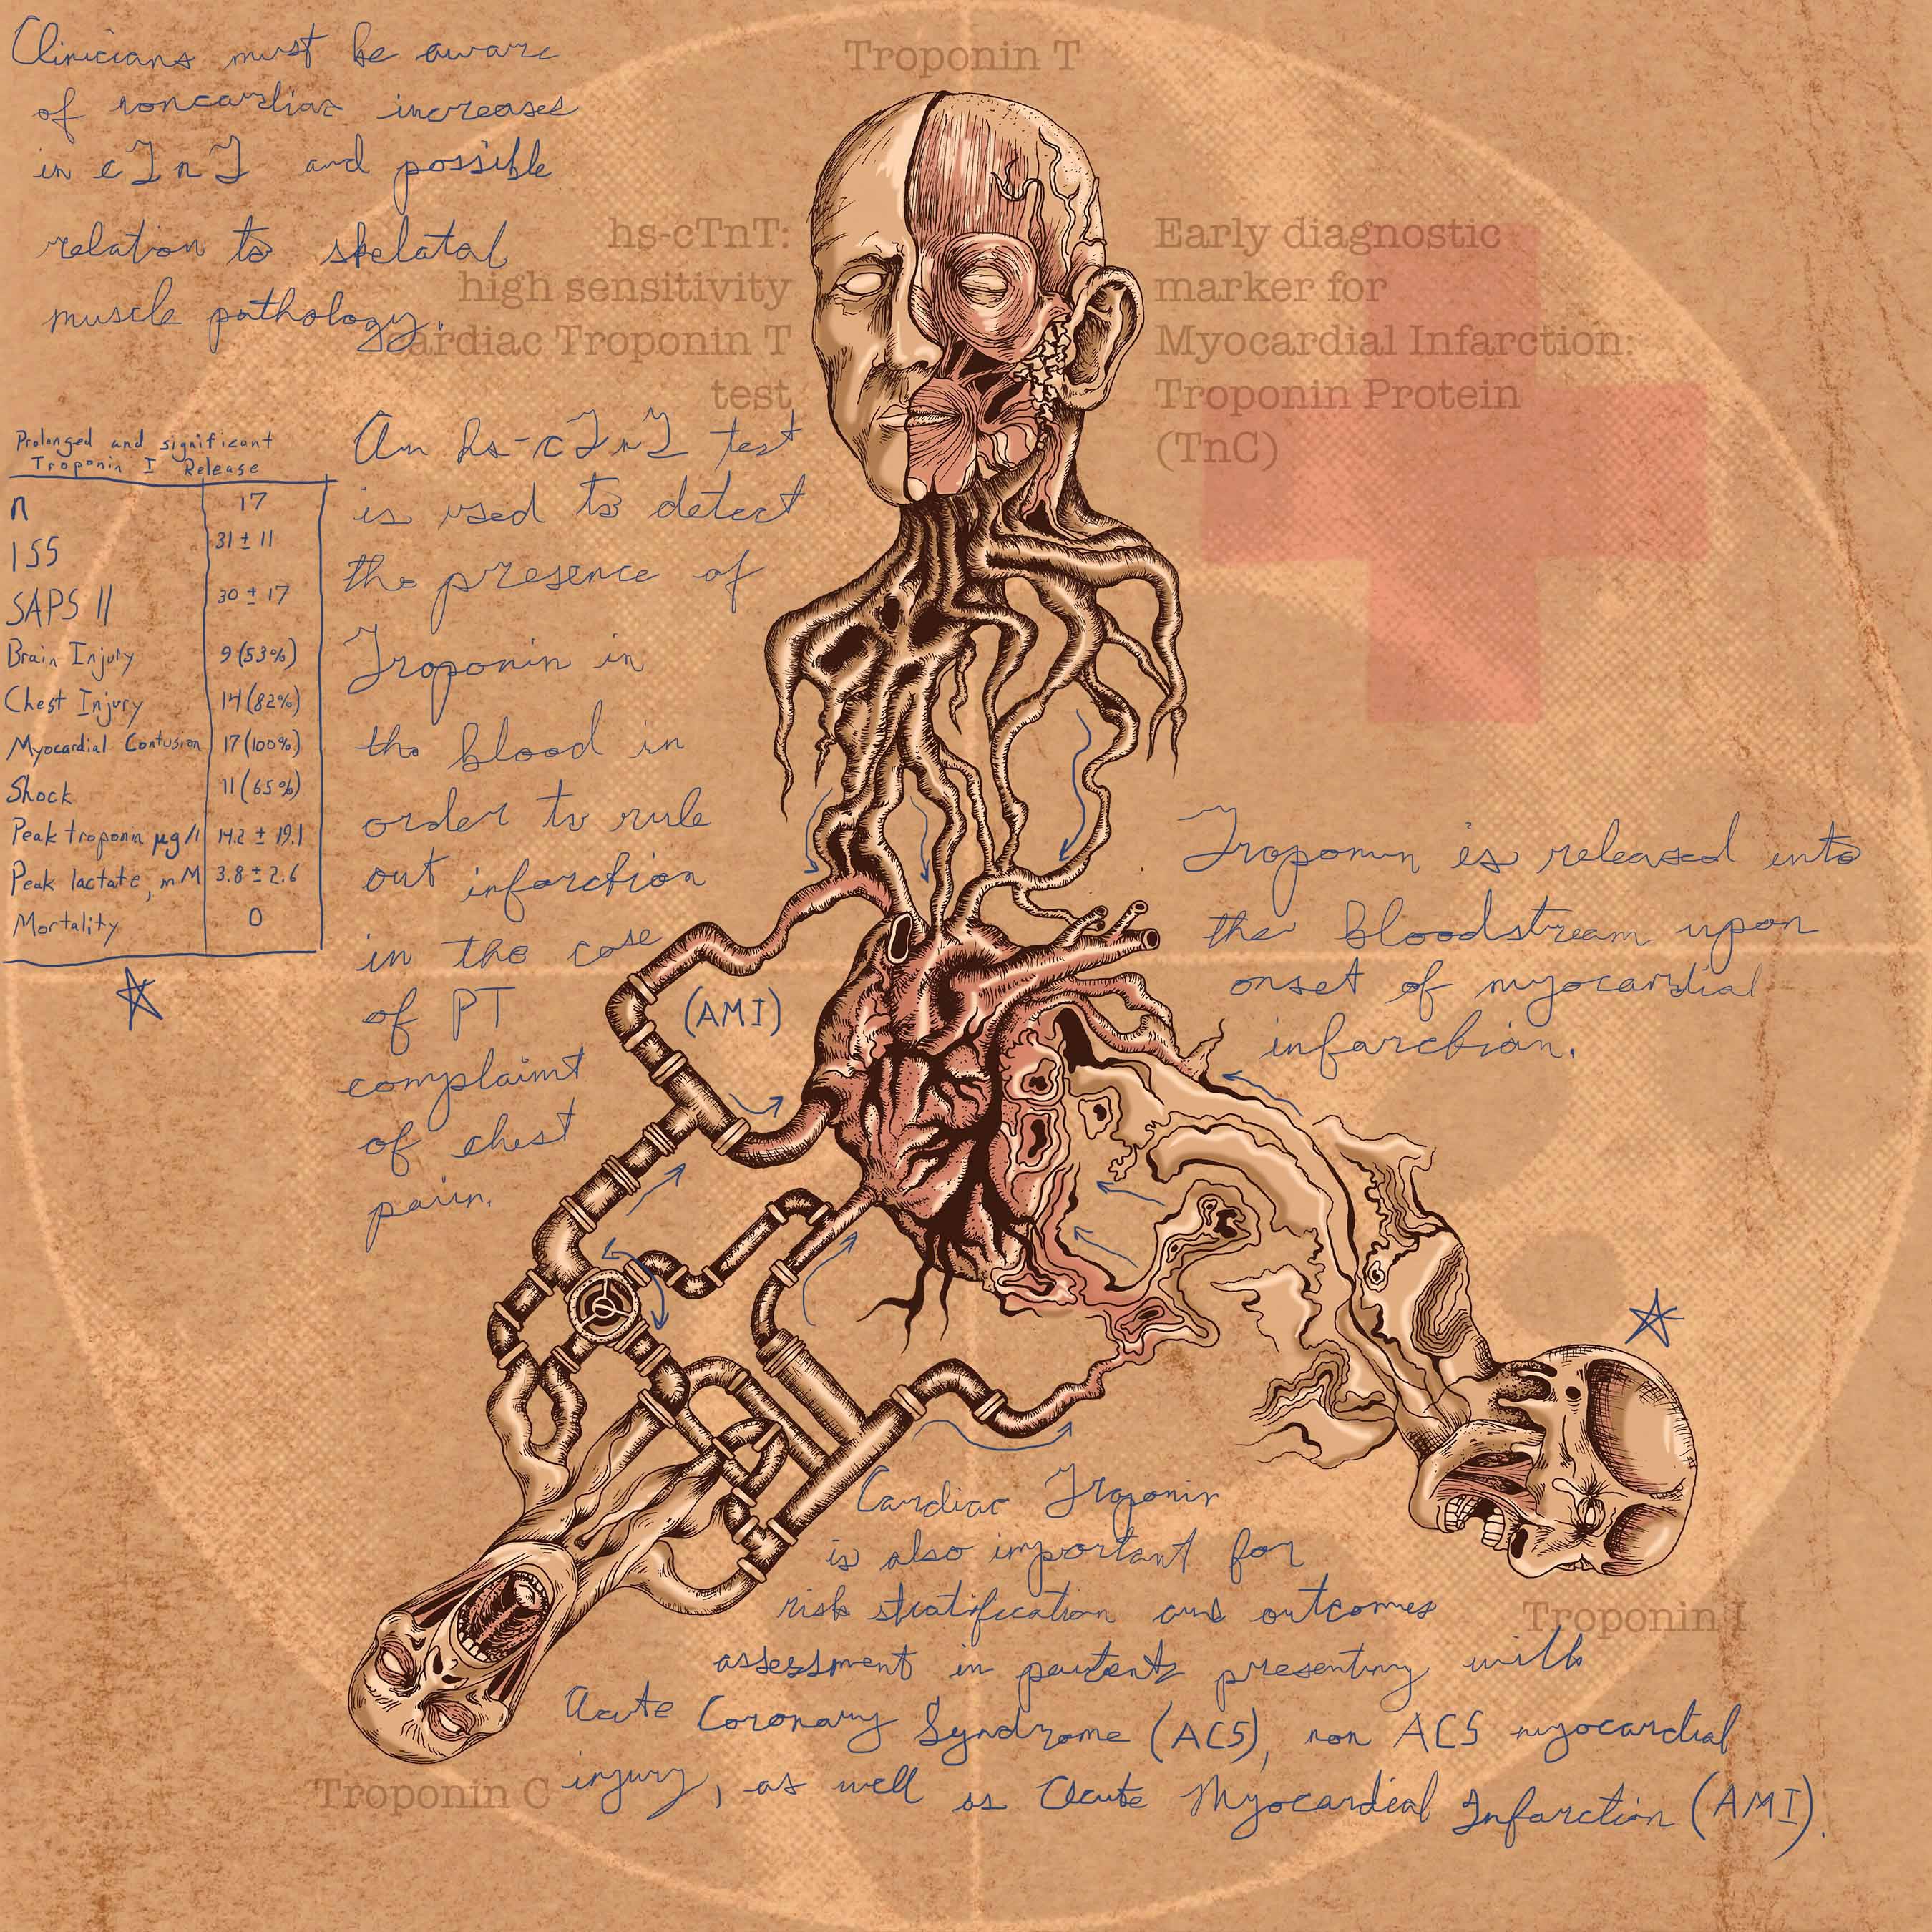 Troponin T
Clinicians must be aware
of noncardiac increases
in cTnT and possible
relation to skelatal
muscle pathology.
hs-cTnT:
high sensitivity
cardiac Troponin T
test
Early diagnostic
marker for
Myocardial Infarction:
Troponin Protein
(TnC)
Prolonged and significant
Troponin I Release
n 17
ISS 31 ± 11
SAPS II 30 ± 17
Brain Injury 9 (53%)
Chest Injury 14 (82%)
Myocardial Contusion 17 (100%)
Shock 11 (65%)
Peak troponin µg/l 14.2 ± 19.1
Peak lactate, mM 3.8 ± 2.6
Mortality 0
An hs-cTnT test
is used to detect
the presence of
Troponin in
the blood in
order to rule
out infarction
in the case
of PT
complaint
of chest
pain.
(AMI)
Troponin is released into
the bloodstream upon
onset of myocardial
infarction.
Cardiac Troponin
is also important for
risk stratification and outcomes
assessment in patients presenting with
Acute Coronary Syndrome (ACS), non ACS myocardial
injury, as well as Acute Myocardial Infarction (AMI).
Troponin I
Troponin C